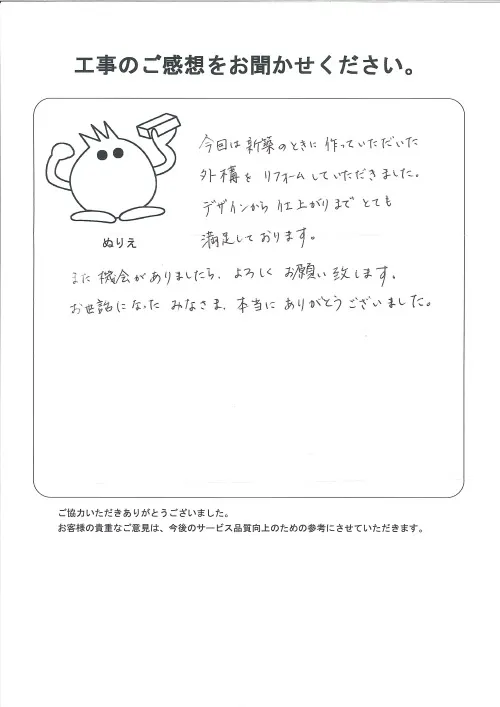 工事のご感想をお聞かせください。
今回は新築のときに作っていただいた
外構をリフォームしていただきました。
デザインから仕上がりまでとても
満足しております。
ぬりえ
また機会がありましたら、よろしくお願い致します。
お世話になったみなさま、本当にありがとうございました。
ご協力いただきありがとうございました。
お客様の貴重なご意見は、今後のサービス品質向上のための参考にさせていただきます。